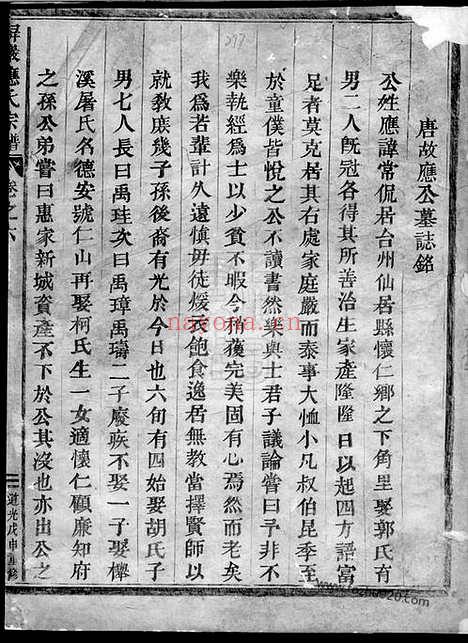 唐故應公墓誌銘
公姓應諱常侃居台州仙居縣懷仁鄉之下角里娶郭氏有
男二人旣冠各得其所善治生家產隆隆日以起四方語富
足者莫克居其右處家庭嚴而泰事大恤小凡叔伯昆季至
於童僕皆悅之公不讀書然樂與士君子議論嘗曰予非不
樂執經爲士以少貧不暇今稍獲完美固有心焉然而老矣
我爲若輩計久遠慎毋徒煖衣飽食逸居無教當擇賢師以
就敎庶幾子孫後裔有光於今日也六旬有四始娶胡氏子
男七人長曰禹珪次曰禹璋禹璹二子廢疾不娶一子娶櫸
溪屠氏名德安號仁山再娶柯氏生一女適懷仁顧廉知府
之孫公弟嘗曰惠家新城資產不下於公其沒也亦出公之
屏巖應氏宗譜
卷之六
道光戊申重修
277
nayona.cn